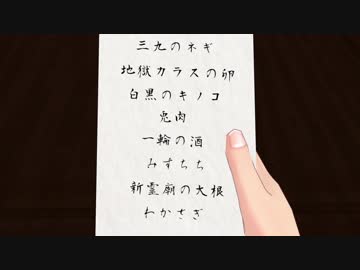 三九のネギ
地獄カラスの卵
白黒のキノコ
兎肉
一輪の酒
みすちち
新霊廟の大根
わかさぎ